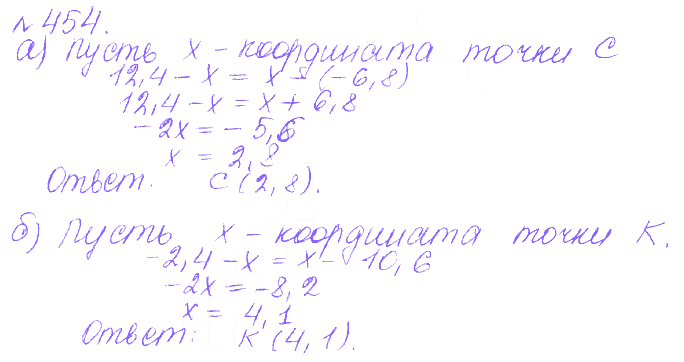 №454.
а) Пусть x - координата точки C
12,4 - x = x - (-6,8)
12,4 - x = x + 6,8
-2x = -5,6
x = 2,8
Ответ. C (2,8).
б) Пусть x - координата точки K.
-2,4 - x = x - 10,6
-2x = -8,2
x = 4,1
Ответ: K (4,1).